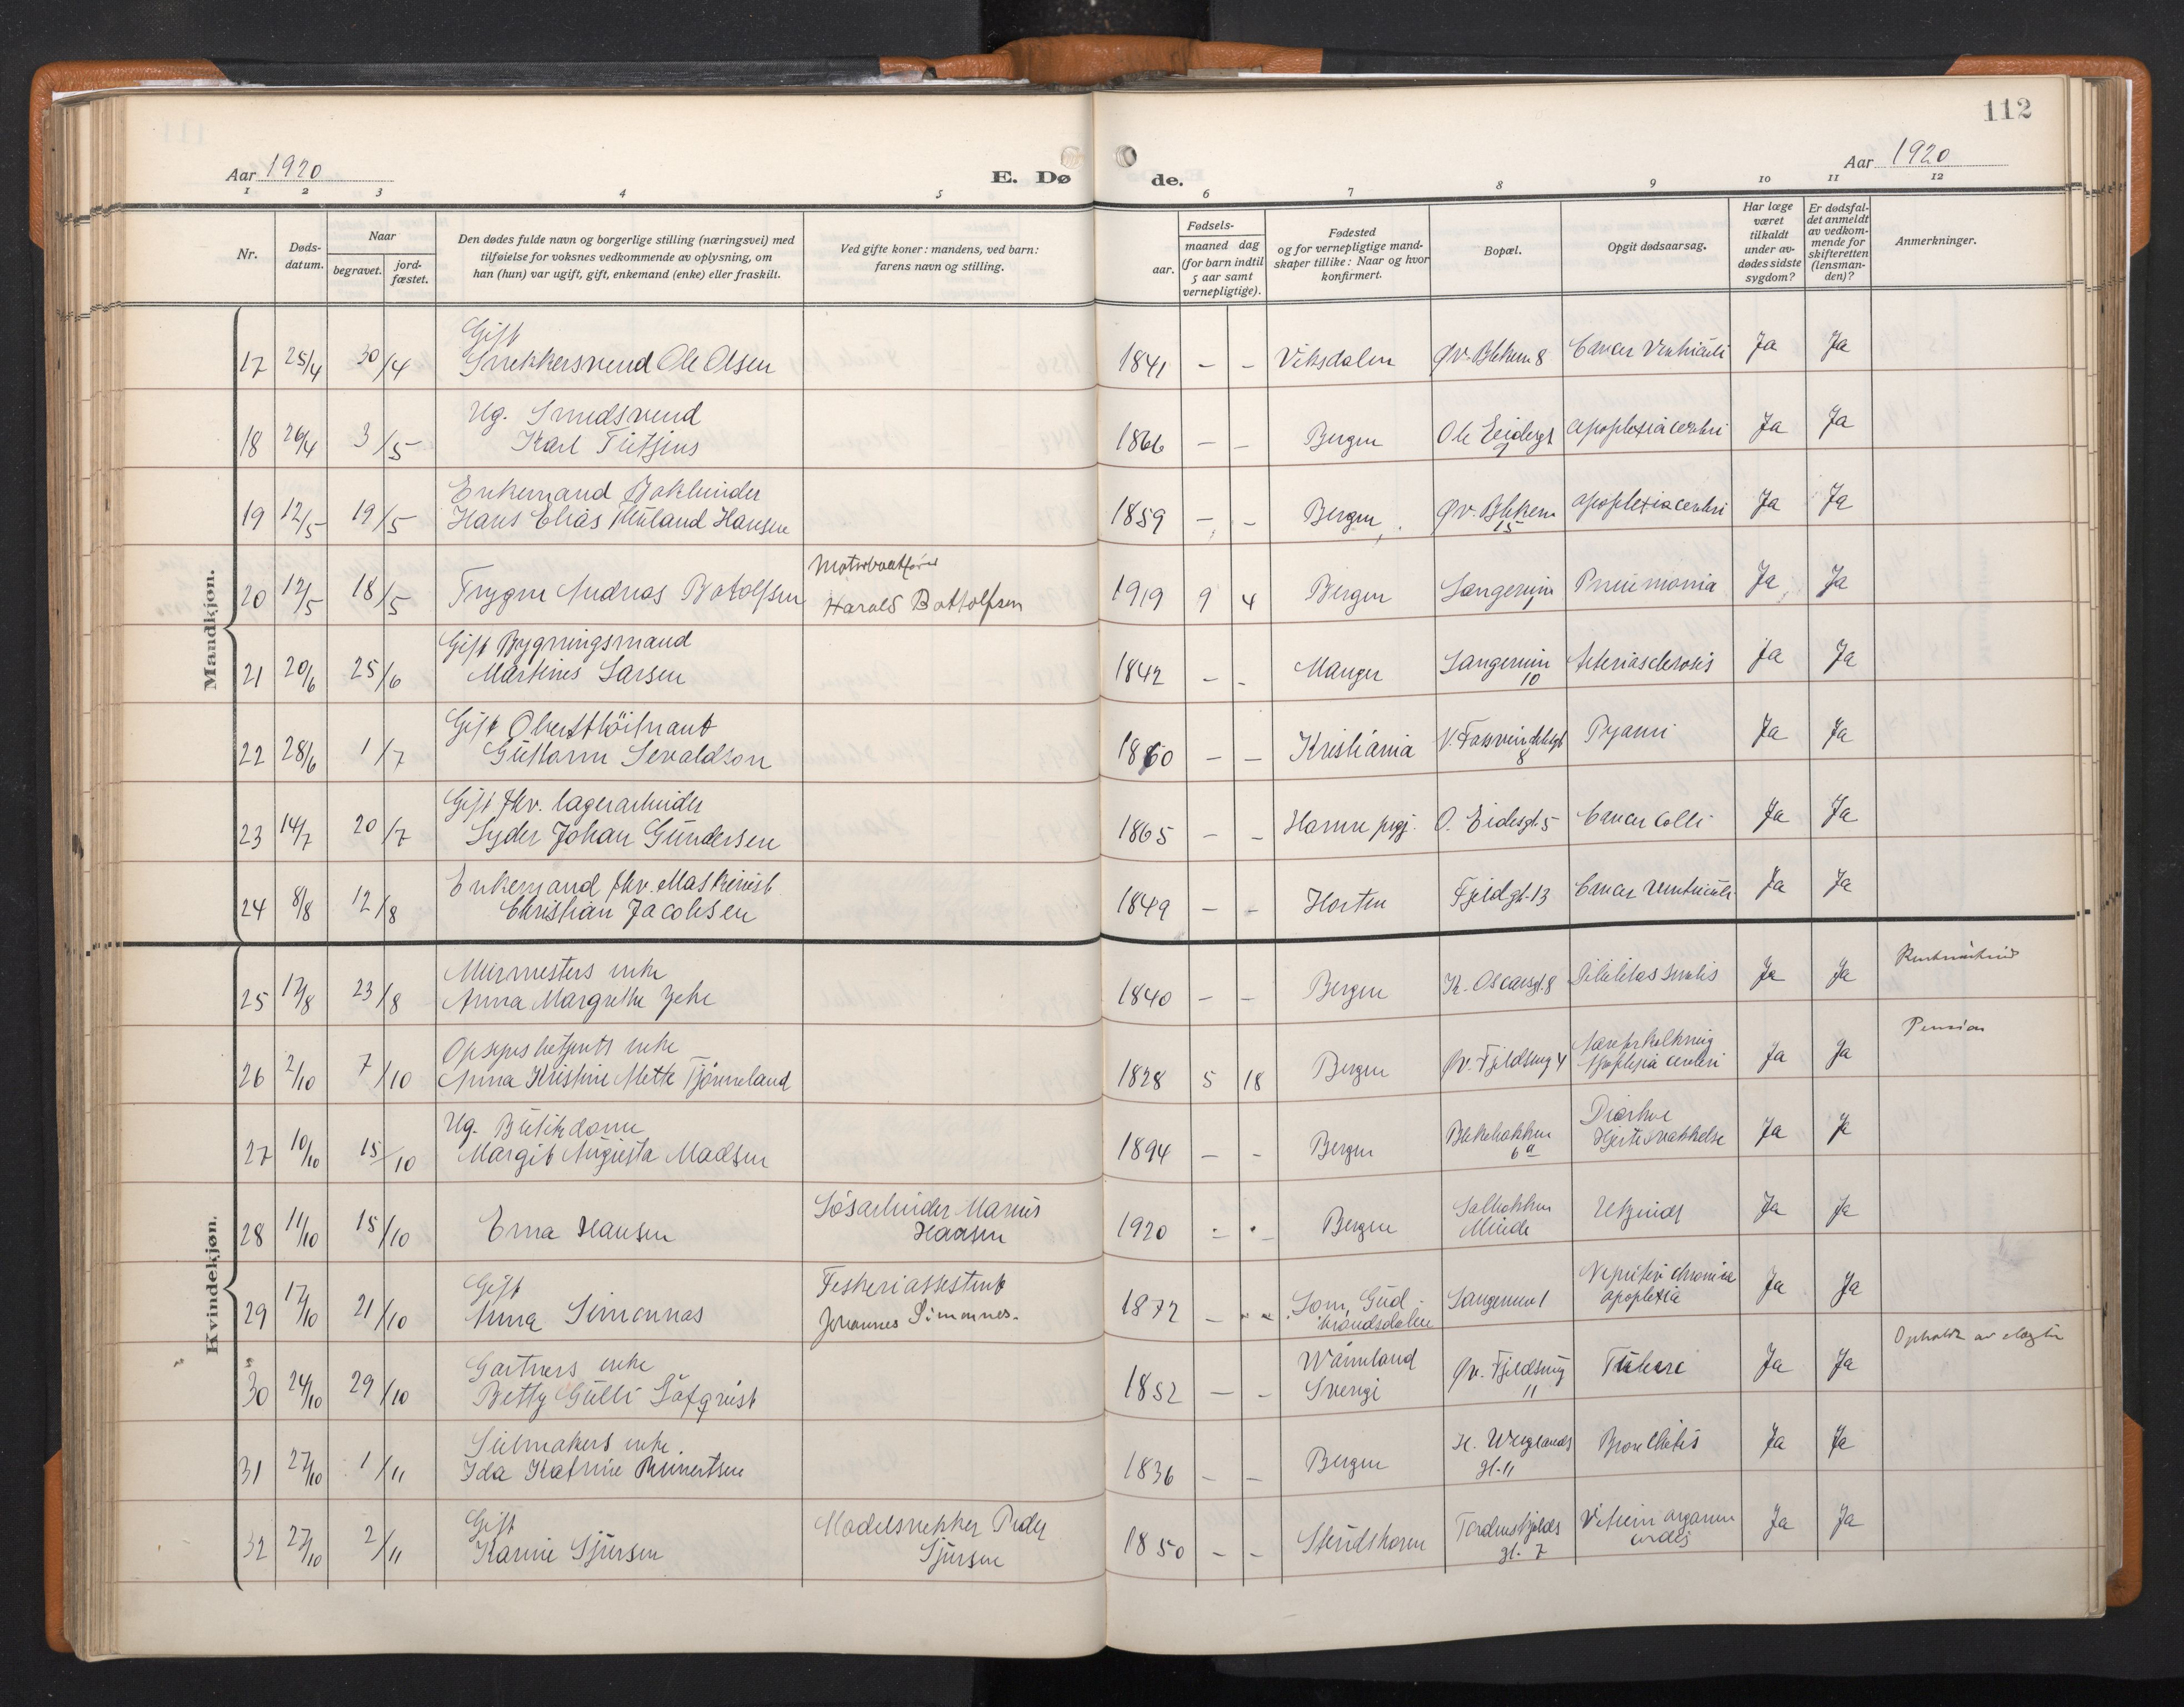 112
Aar 1920
E. Dø
de.
Aar 1920
1 2 3 4 5 6 7 8 9 10 11 12
Nr.
Døds-
datum.
Naar
begravet.
jord-
fæstet.
Den dødes fulde navn og borgerlige stilling (næringsvei) med
tilføielse for voksnes vedkommende av oplysning, om
han (hun) var ugift, gift, enkemand (enke) eller fraskilt.
Ved gifte koner: mandens, ved barn:
farens navn og stilling.
Fødsels-
aar.
maaned dag
(for barn indtil
5 aar samt
vernepligtige).
Fødested
og for vernepligtige mand-
skaper tillike: Naar og hvor
konfirmert.
Bopæl.
Opgit dødsaarsag.
Har læge
været
tilkaldt
under av-
dødes sidste
sygdom?
Er dødsfal-
det anmeldt
av vedkom-
mende for
skifteretten
(lensman-
den)?
Anmerkninger.
Mandkjøn.
Gift
17 25/4 30/4 Snekkersvend Ole Olsen 1841 – – Viksdalen Øv. Blekev 8 Cancer Ventriculi Ja Ja
Ug. Smedsvend
18 26/4 3/5 Karl Tietjens 1866 – – Bergen Ole Eidesgt 9 apoplexia cerebri Ja Ja
Enkemand Bokbinder
19 12/5 19/5 Hans Elias Huland Hansen 1859 – – Bergen Øv. Blekev 15 apoplexia cerebri Ja Ja
Motorbaatfører
20 12/5 18/5 Trygve Andreas Botolfsen Harald Bottolfsen 1919 9 4 Bergen Langevin Pneumonia Ja Ja
Gift Bygningsmand
21 20/6 25/6 Martines Larsen 1842 – – Manger Langevin 10 Arteriasclerosis Ja Ja
Gift Oberstløitnant
22 28/6 1/7 Gustann Sevaldson 1860 – – Kristiania V. Torvindelsgt 8 Pyæmi Ja Ja
Gift fhv. lagerarbeider
23 14/7 20/7 Lyder Johan Gundersen 1865 – – Hamre prgj. O. Eidesgt. 5 Cancer Colli Ja Ja
Enkemand fhv. Maskinist
24 8/8 12/8 Christian Jacobsen 1849 – – Horten Fjeldgt. 13 Cancer Ventriculi Ja Ja
Kvindekjøn.
Murmesters enke
25 17/8 23/8 Anna Margrethe Jehe 1840 – – Bergen K. Oscarsgt. 8 Debilitas senilis Ja Ja
Opsynsbetjents enke Aareforkalkning Pension
26 2/10 7/10 Anna Kristine Mette Tjønneland 1828 5 18 Bergen Øv. Fjeldsmug 4 Apoplexia cerebri Ja Ja
Ug. Butikdame Diarhoe
27 10/10 15/10 Margit Augusta Madsen 1894 – – Bergen Blekebakken 6a Hjertesvækkelse Ja Ja
Løsarbeider Marius
28 11/10 15/10 Erna Hansen Hansen 1920 Bergen Solbakken Minde Ukjendt Ja Ja
Gift Fiskeriassistent Nephriti chronica
29 17/10 21/10 Anna Simonnæs Johannes Simonnes. 1872 – Lom, Gud-
brandsdalen Langevin 1 apoplexia Ja Ja
Gartners enke Wärmland
30 24/10 29/10 Betty Gulli Löfqvist 1852 – – Sverige Øv. Fjeldsmug 11 Tuberc Ja Ja
Seilmakers enke
31 27/10 1/11 Ida Katrine Reinertsen 1836 – – Bergen H. Wergelands gt. 11 Bronchitis Ja Ja
Gift Modelsnekker Peder
32 27/10 2/11 Karine Sjursen Sjursen 1850 – – Skudshavn Tordenskjolds gt. 7 Vitium organen cordis Ja Ja